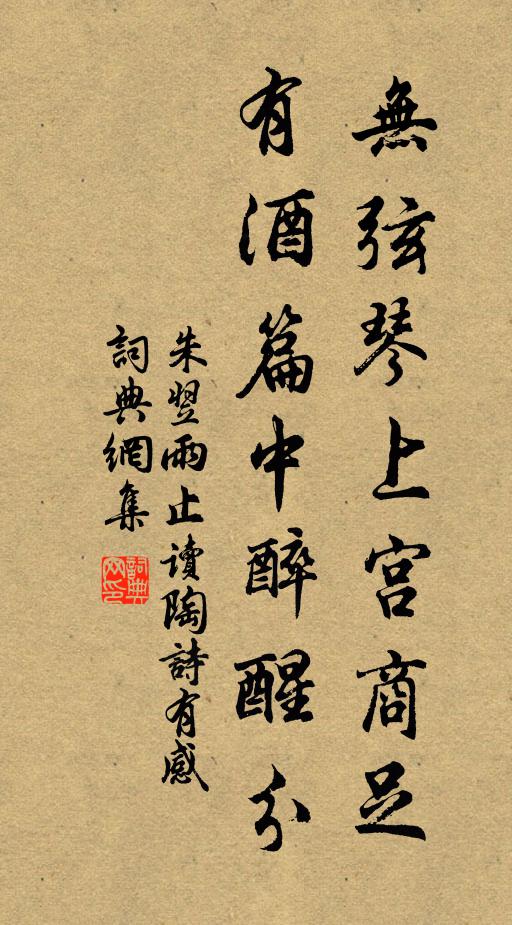 無弦琴上宮商足
有酒篇中醉醒分
朱翌雨止讀陶詩有感
詞典網集
詞典網印